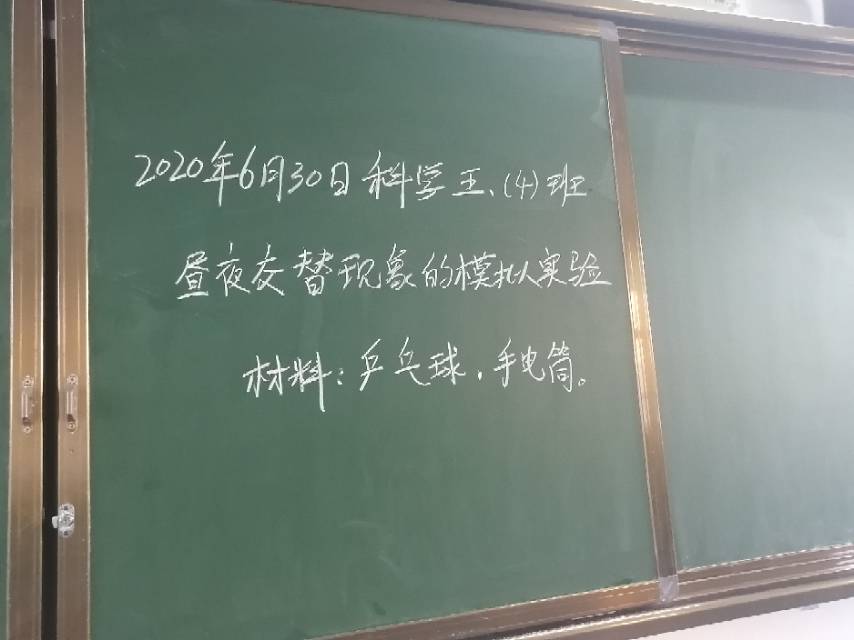 2020年6月30日科学王、(4)班
昼夜交替现象的模拟实验
材料：乒乓球，手电筒。